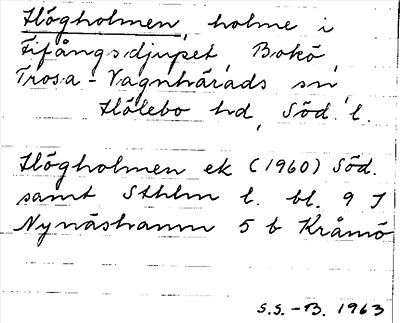 Högholmen, holme i
Fifångsdjupet, Bokö,
Trosa-Vagnhärads sn,
Hölebo hd, Söd. l.
Högholmen ek (1960) Söd.
samt Sthlm l. bl. 9 J
Nynäshamn 5 b Krämö
S.S.-B. 1963